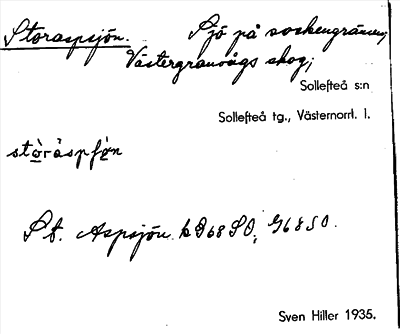 Storaspsjön. Sjö på sockengränsen,
Västergranvågs skog;
Sollefteå s:n
Sollefteå tg., Västernorrl. l.
St. Aspsjön
Sven Hiller 1935.